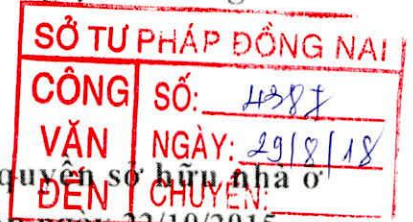 SỞ TƯ PHÁP ĐỒNG NAI
CÔNG VĂN ĐẾN
SỐ: 4387
NGÀY: 29/8/18
CHUYỂN:
quyền sở hữu nhà ở
22/10/2015